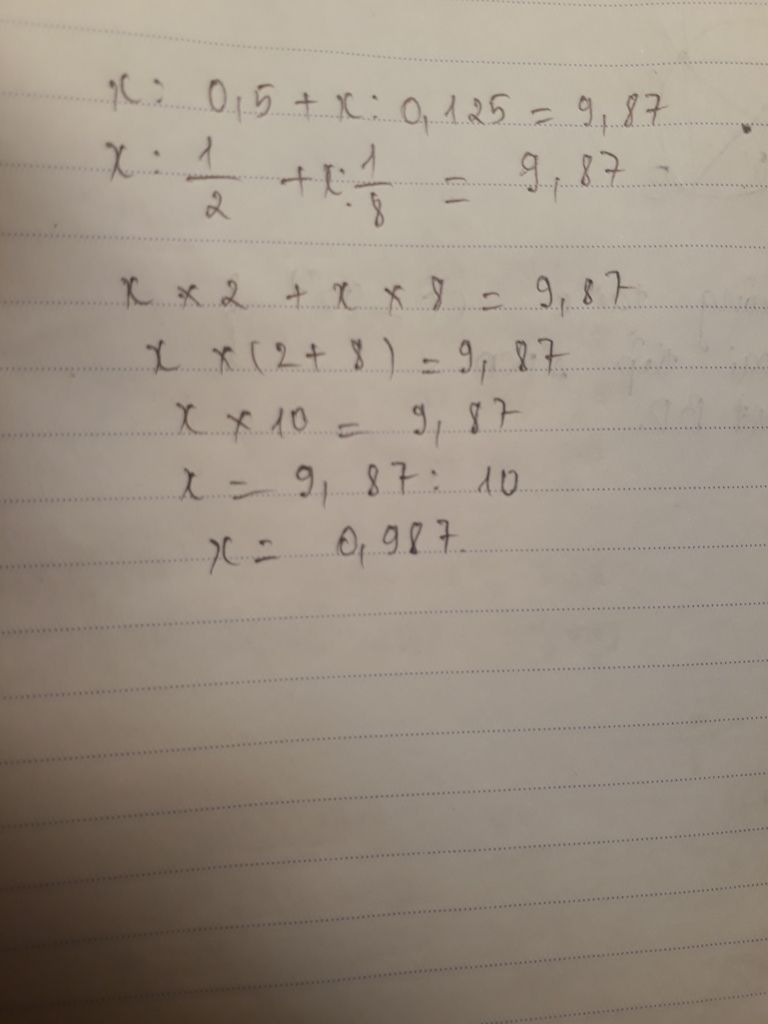 x : 0,5 + x : 0,125 = 9,87
x : 1/2 + x : 1/8 = 9,87
x × 2 + x × 8 = 9,87
x × (2 + 8) = 9,87
x × 10 = 9,87
x = 9,87 : 10
x = 0,987.